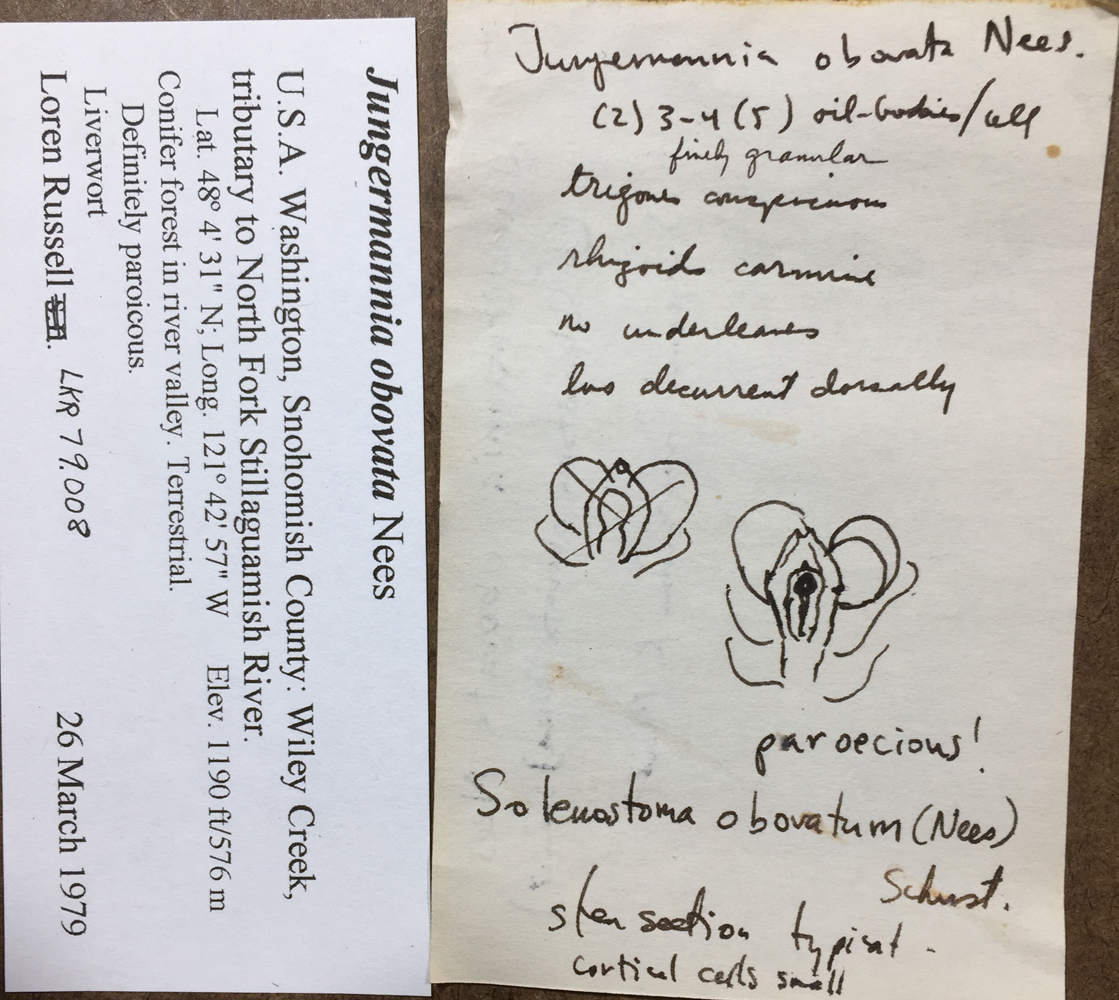 Jungermannia obovata Nees
U.S.A. Washington, Snohomish County: Wiley Creek,
tributary to North Fork Stillaguamish River.
Lat. 48° 4' 31" N; Long. 121° 42' 57" W Elev. 1190 ft/576 m
Conifer forest in river valley. Terrestrial.
Definitely paroicous.
Liverwort
Loren Russell LKR 79.008 26 March 1979
Jungermannia obovata Nees.
(2) 3-4 (5) oil-bodies/cell
finely granular
trigones conspicuous
rhizoids carmine
no underleaves
lvs decurrent dorsally
paroecious!
Solenostoma obovatum (Nees)
Schust.
stem section typical -
cortical cells small